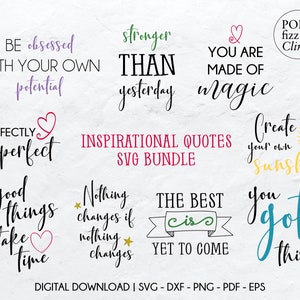 BE obsessed
TH YOUR OWN
potential
stronger
THAN
yesterday
YOU ARE
MADE OF
magic
PO
fizz
Cli
FECTLY
perfect
INSPIRATIONAL QUOTES
SVG BUNDLE
Create
your own
sunsh
good
things
take
time
Nothing
changes if
nothing
changes
THE BEST
is
YET TO COME
you
got
thi
DIGITAL DOWNLOAD | SVG - DXF - PNG - PDF - EPS